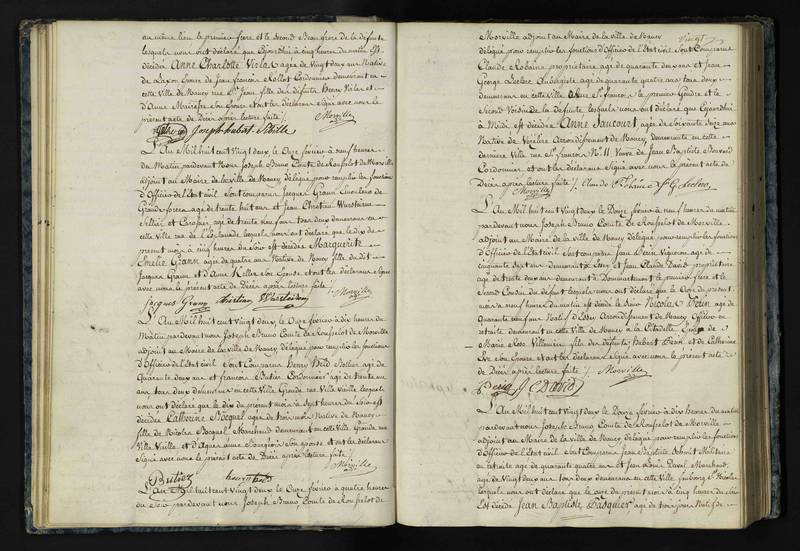 au même lieu le premier frère et le second Beau frère de la défunte
lesquels nous ont déclaré que Cejourdhui à cinq heures du matin est
décédée Anne Charlotte Virlet agée de Vingt deux ans Native
de Laxou Epouse de Jean françois Rollot Cordonnier demeurant en
cette Ville de Nancy rue fille des défunts Henry Virlet et
d'Anne Mairesse son Epouse et ont les déclarans signé avec nous le
présent acte de Décès après lecture faite /.
Joseph hubert Morville
L'An Mil huit cent Vingt deux le Onze février à neuf heures
du Matin pardevant nous Joseph Bruno Comte de Rousselot de Morville
adjoint au Maire de la ville de Nancy délégué pour remplir les fonctions
d'Officier de l'Etat civil sont comparus Jacques Gramm
agé de trente huit ans et Jean Chrétien
Sellier et Carossier agé de trente neuf ans tous deux demeurans en
cette Ville rue de l'Esplanade lesquels nous ont déclaré que le dix du
présent mois à cinq heures du soir est décédée Marguerite
Emelie Gramm agée de quatre ans Native de Nancy fille du dit
Jacques Gramm et d'Anne Keller son Epouse et ont les déclarans signé
avec nous le présent acte de Décès après lecture faite /.
Jacques Morville
L'An Mil huit cent Vingt deux le Onze février à dix heures du
Matin pardevant nous Joseph Bruno Comte de Rousselot de Morville
adjoint au Maire de la ville de Nancy délégué pour remplir les fonctions
d'Officier de l'Etat civil sont Comparus Henry Bottier agé de
Quarante deux ans et francois Butier Cordonnier agé de trente un
ans tous deux demeurans en cette Ville Grande rue Ville vieille lesquels
nous ont déclaré que le dix du présent mois à sept heures du soir est
décédée Catherine Bocquel agée de trois mois Native de Nancy
fille de Nicolas Bocquel Marchand demeurant en cette Ville Grande rue
Ville Vieille et d'Agnes Anne Bourgeois son épouse et ont les déclarans
signé avec nous le présent acte de Décès après lecture faite /.
Butiez Morville
L'An Mil huit cent Vingt deux le Onze février à quatre heures
du Soir pardevant nous Joseph Bruno Comte de Rousselot de
Vingt
Morville adjoint au Maire de la ville de Nancy
délégué pour remplir les fonctions d'Officier de l'Etat civil sont Comparus
Claude Robaine propriétaire agé de quarante deux ans et Jean
George Leclerc Aubergiste agé de quarante quatre ans tous deux
demeurans en cette Ville rue St. francois, le premier Gendre et le
second Voisin de la défunte lesquels nous ont déclaré que Cejourdhui
à Midi est décédée Anne Saucourt agée de soixante douze ans
Native de Vezelise Arrondissement de Nancy demeurante en cette
dernière Ville rue St. francois N.° 11 Veuve de Jean Baptiste
Cordonnier et ont les déclarans signé avec nous le présent acte de
Décès après lecture faite /. Claude Robaine J. G. Leclerc
Morville
L'An Mil huit cent Vingt deux le Douze février à neuf heures du matin
pardevant nous Joseph Bruno Comte de Rousselot de Morville
adjoint au Maire de la ville de Nancy délégué pour remplir les fonctions
d'Officier de l'Etat civil sont comparus Jean Perin Vigneron agé de
cinquante sept ans demeurant à Essey et Jean Claude David propriétaire
agé de trente deux ans demeurant à Dommartemont le premier frère et le
second Cousin du défunt lesquels nous ont déclaré que le Onze du present
mois à neuf heures du matin est décédé le Sieur Nicolas Perin agé de
Quarante neuf ans Natif d'Essey Arrondissement de Nancy Officier en
retraite demeurant en cette Ville de Nancy à la Citadelle Epoux de
Marie Rose Villemin fils des défunts Hubert Perin et de Catherine
Eve son Epouse et ont les déclarans signé avec nous le présent acte
de Décès après lecture faite /. Morville
Perin J C David
L'An Mil huit cent Vingt deux le Douze février à dix heures du matin
pardevant nous Joseph Bruno Comte de Rousselot de Morville
adjoint au Maire de la ville de Nancy délégué pour remplir les fonctions
d'Officier de l'Etat civil sont Comparus Jean Baptiste Schmit Militaire
en retraite agé de quarante quatre ans et Jean Louis David Marchand
agé de Vingt deux ans tous deux demeurans en cette Ville, faubourg St. Nicolas
lesquels nous ont déclaré que le onze du présent mois à cinq heures du soir
Est décédé Jean Baptiste Pasquier agé de trois jours Natif de